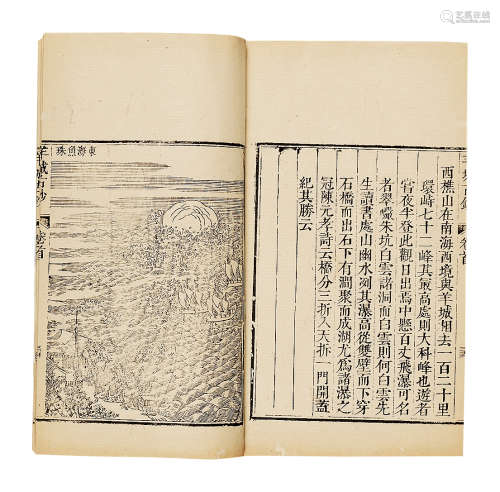 西樵山在南海西境與羊城相去一百二十里
環峙七十二峰其最高處則大科峰也遊者
宵夜半登此觀日出焉中懸百丈飛瀑可名
者翠巖朱坑白雲諸洞而白雲則何白雲先
生讀書處山幽水洌其瀑高從雙壁而下穿
石橋而出石下有澗聚而成湖尤為諸瀑之
冠陳元孝詩云橋分三折人天拆一門開蓋
紀其勝云
東海魚珠
羊城古鈔
卷首